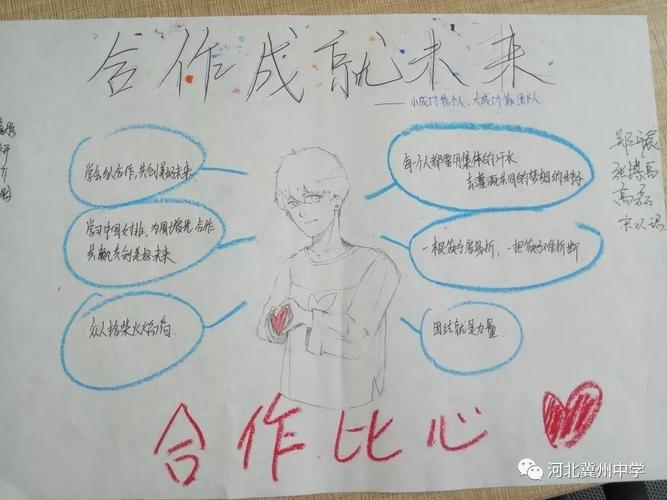 合作成就未来
——小成功靠个人，大成功靠团队
学会以合作，共创美好未来
每个人都要用集体的汗水
去灌溉共同的梦想的种子
学习中国女排，为国增光 合作
共赢共创美好未来
一根筷子容易折，一把筷子难折断
众人拾柴火焰高
团结就是力量
高磊
合作比心
河北冀州中学